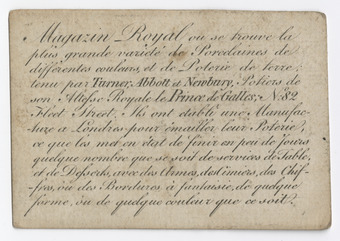 Magazin Royal où se trouve la
plus grande varieté de Porcelaines de
différentes couleurs, et de Poterie de terre,
tenu par Turner, Abbott et Newbury, Potiers de
son Altesse Royale le Prince de Galles, N.º 82
Fleet Street. Ils ont établi une Manufac-
ture à Londres pour émailler leur Poterie,
ce que les met en état de finir en peu de jours
quelque nombre que se soit de services de Table,
et de Desserts, avec des Armes, des Cimiers, des Chif-
fres, où des Bordures à fantaisie, de quelque
forme, ou de quelque couleur que ce soit.